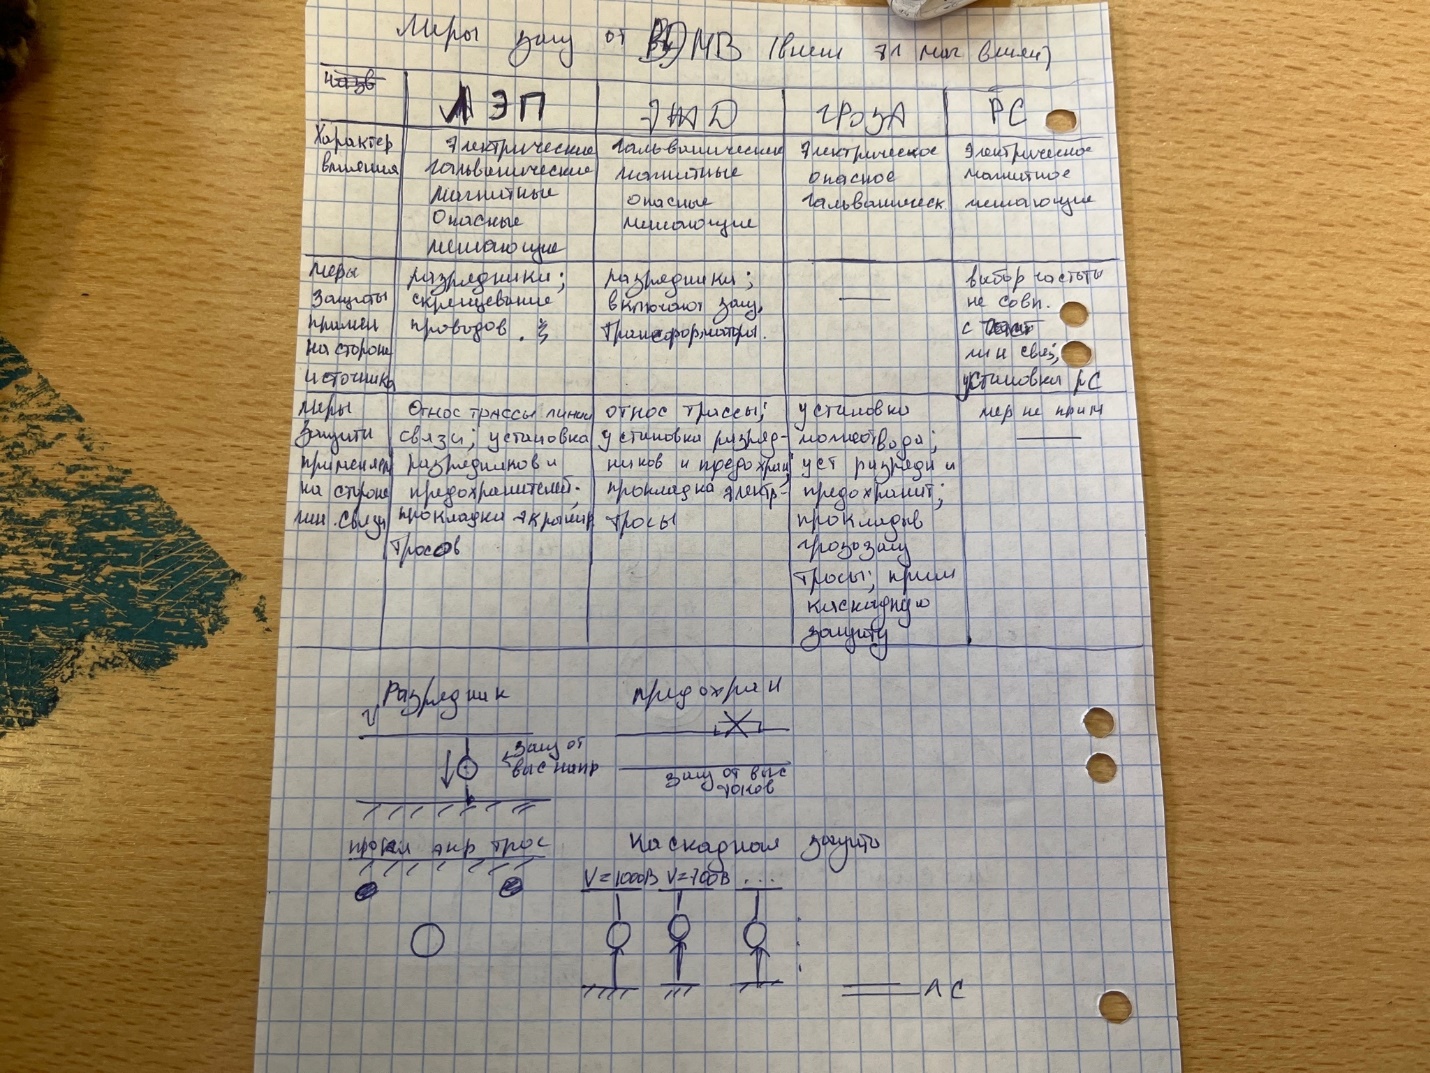 Меры защ от ВЭМВ (внеш эл маг влиян)
назв
ЛЭП
ЭЖД
ГРОЗА
РС
Характер
влияния
Электрические
гальванические
магнитные
опасные
мешающие
гальванические
магнитные
опасные
мешающие
Электрическое
опасное
гальваническ
Электрическое
магнитное
мешающие
меры
защиты
примен
на стороне
источника
разрядники;
скрещевание
проводов.
разрядники;
включают защ,
трансформаторы.
—
выбор частоты
не совп.
с част
лин связ;
установка РС
меры
защиты
применяем
на стороне
лин. связи
Относ трассы линии
связи; установка
разрядников и
предохранителей;
прокладка экранир
тросов
относ трассы;
установка разряд-
ников и предохран;
прокладка электр-
тросы
установка
молниотвода;
уст разрядн и
предохранит;
прокладыв
грозозащ
тросы; прим
каскадную
защиту
мер не прим
—
Разрядник
предохран
V
защ от
выс напр
защ от выс
токов
прокл экр трос
Каскадная защита
V=1000В V=700В ...
ЛС